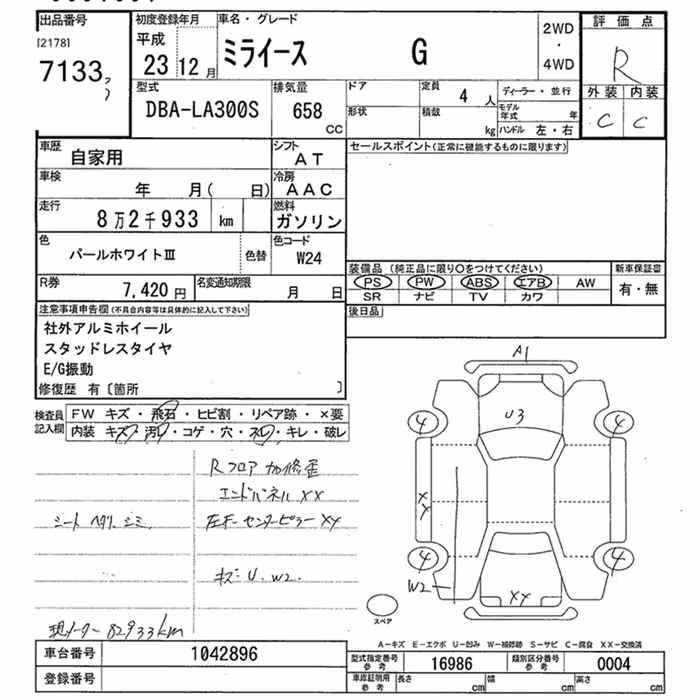 出品番号
[2178]
7133
初度登録年月
平成
23 12 月
車名・グレード
ミライース G
2WD
・
4WD
評価点
R
外装 内装
C C
型式
DBA-LA300S
排気量
658
CC
ドア
形状
定員
4 人
積載
kg
ディーラー・並行
モデル年式 年
ハンドル 左・右
車歴
自家用
シフト
AT
セールスポイント(正常に機能するものに限ります)
車検
年 月( 日)
冷房
AAC
走行
8万2千933 km
燃料
ガソリン
色
パールホワイトⅢ
色替
色コード
W24
装備品 (純正品に限り○をつけてください)
PS PW ABS エアB AW
SR ナビ TV カワ
新車保証書
有・無
R券
7,420 円
名変通知期限
月 日
後日品
注意事項申告欄(不具合内容等は具体的に記入して下さい)
社外アルミホイール
スタッドレスタイヤ
E/G振動
修復歴 有〔箇所 〕
検査員記入欄
FW キズ・飛石・ヒビ割・リペア跡・×要
内装 キズ・汚レ・コゲ・穴・スレ・キレ・破レ
Rフロア 加修歪
エンドパネル XX
シート ヘタリ、シミ
左F-センターピラー XX
キズ U. W2.
現メーター 82933km
A1
U3
4
4
XX
4
4
W2
XX
スペア
A-キズ E-エクボ U-凹み W-補修跡 S-サビ C-腐食 XX-交換済
車台番号
1042896
登録番号
型式指定番号参考
16986
類別区分番号参考
0004
車庫証明用参考
長さ cm
幅 cm
高さ cm